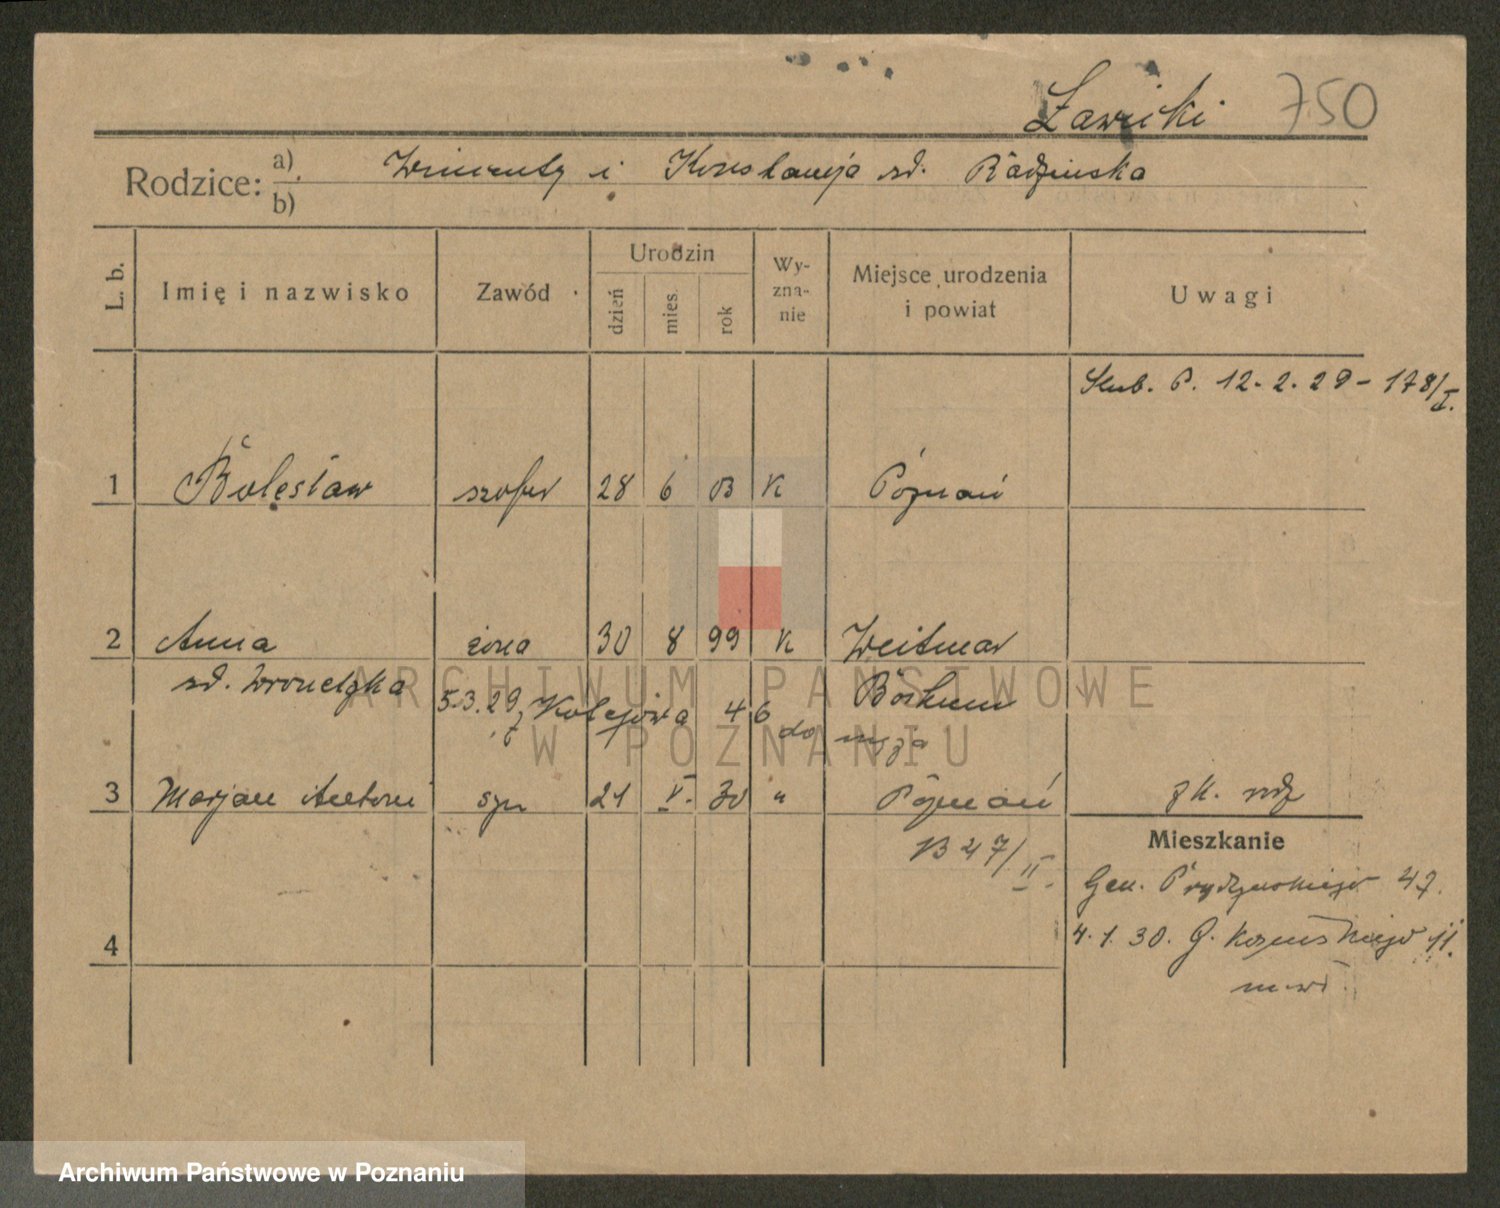 Ławicki 750
Rodzice: a) Wincenty i Konstancja zd. Radzińska
b)
L. b. Imię i nazwisko Zawód Urodzin dzień mies. rok Wy-zna-nie Miejsce urodzenia i powiat Uwagi
Ślub. P. 12.2.29 - 178/I.
1 Bolesław szofer 28 6 03 K Poznań
2 Anna żona 30 8 99 K Weitmar
zd. Wronecka Bochum
5.3.29 Kolejowa 46
do męża
3 Marjan Antoni syn 21 V. 30 " Poznań
B 47/II.
Mieszkanie
Gen. Prądzyńskiego 47.
4
4.1.30. G. Kosińskiego 11.
ARCHIWUM PAŃSTWOWE
W POZNANIU
Archiwum Państwowe w Poznaniu